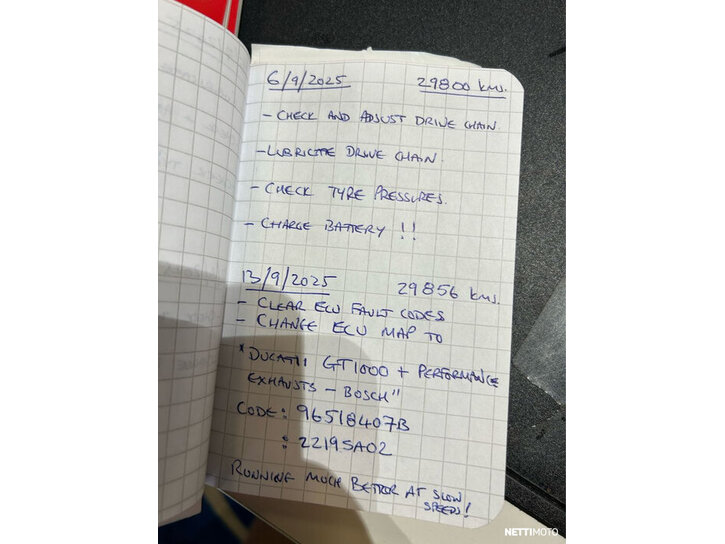 6/9/2025 29800 kms.
- CHECK AND ADJUST DRIVE CHAIN.
- LUBRICATE DRIVE CHAIN.
- CHECK TYRE PRESSURES.
- CHARGE BATTERY !!
13/9/2025 29856 kms.
- CLEAR ECU FAULT CODES
- CHANGE ECU MAP TO
"DUCATI GT1000 + PERFORMANCE
EXHAUSTS - BOSCH"
CODE: 96518407B
: 22195A02
RUNNING MUCH BETTER AT SLOW
SPEEDS!
NETTIMOTO